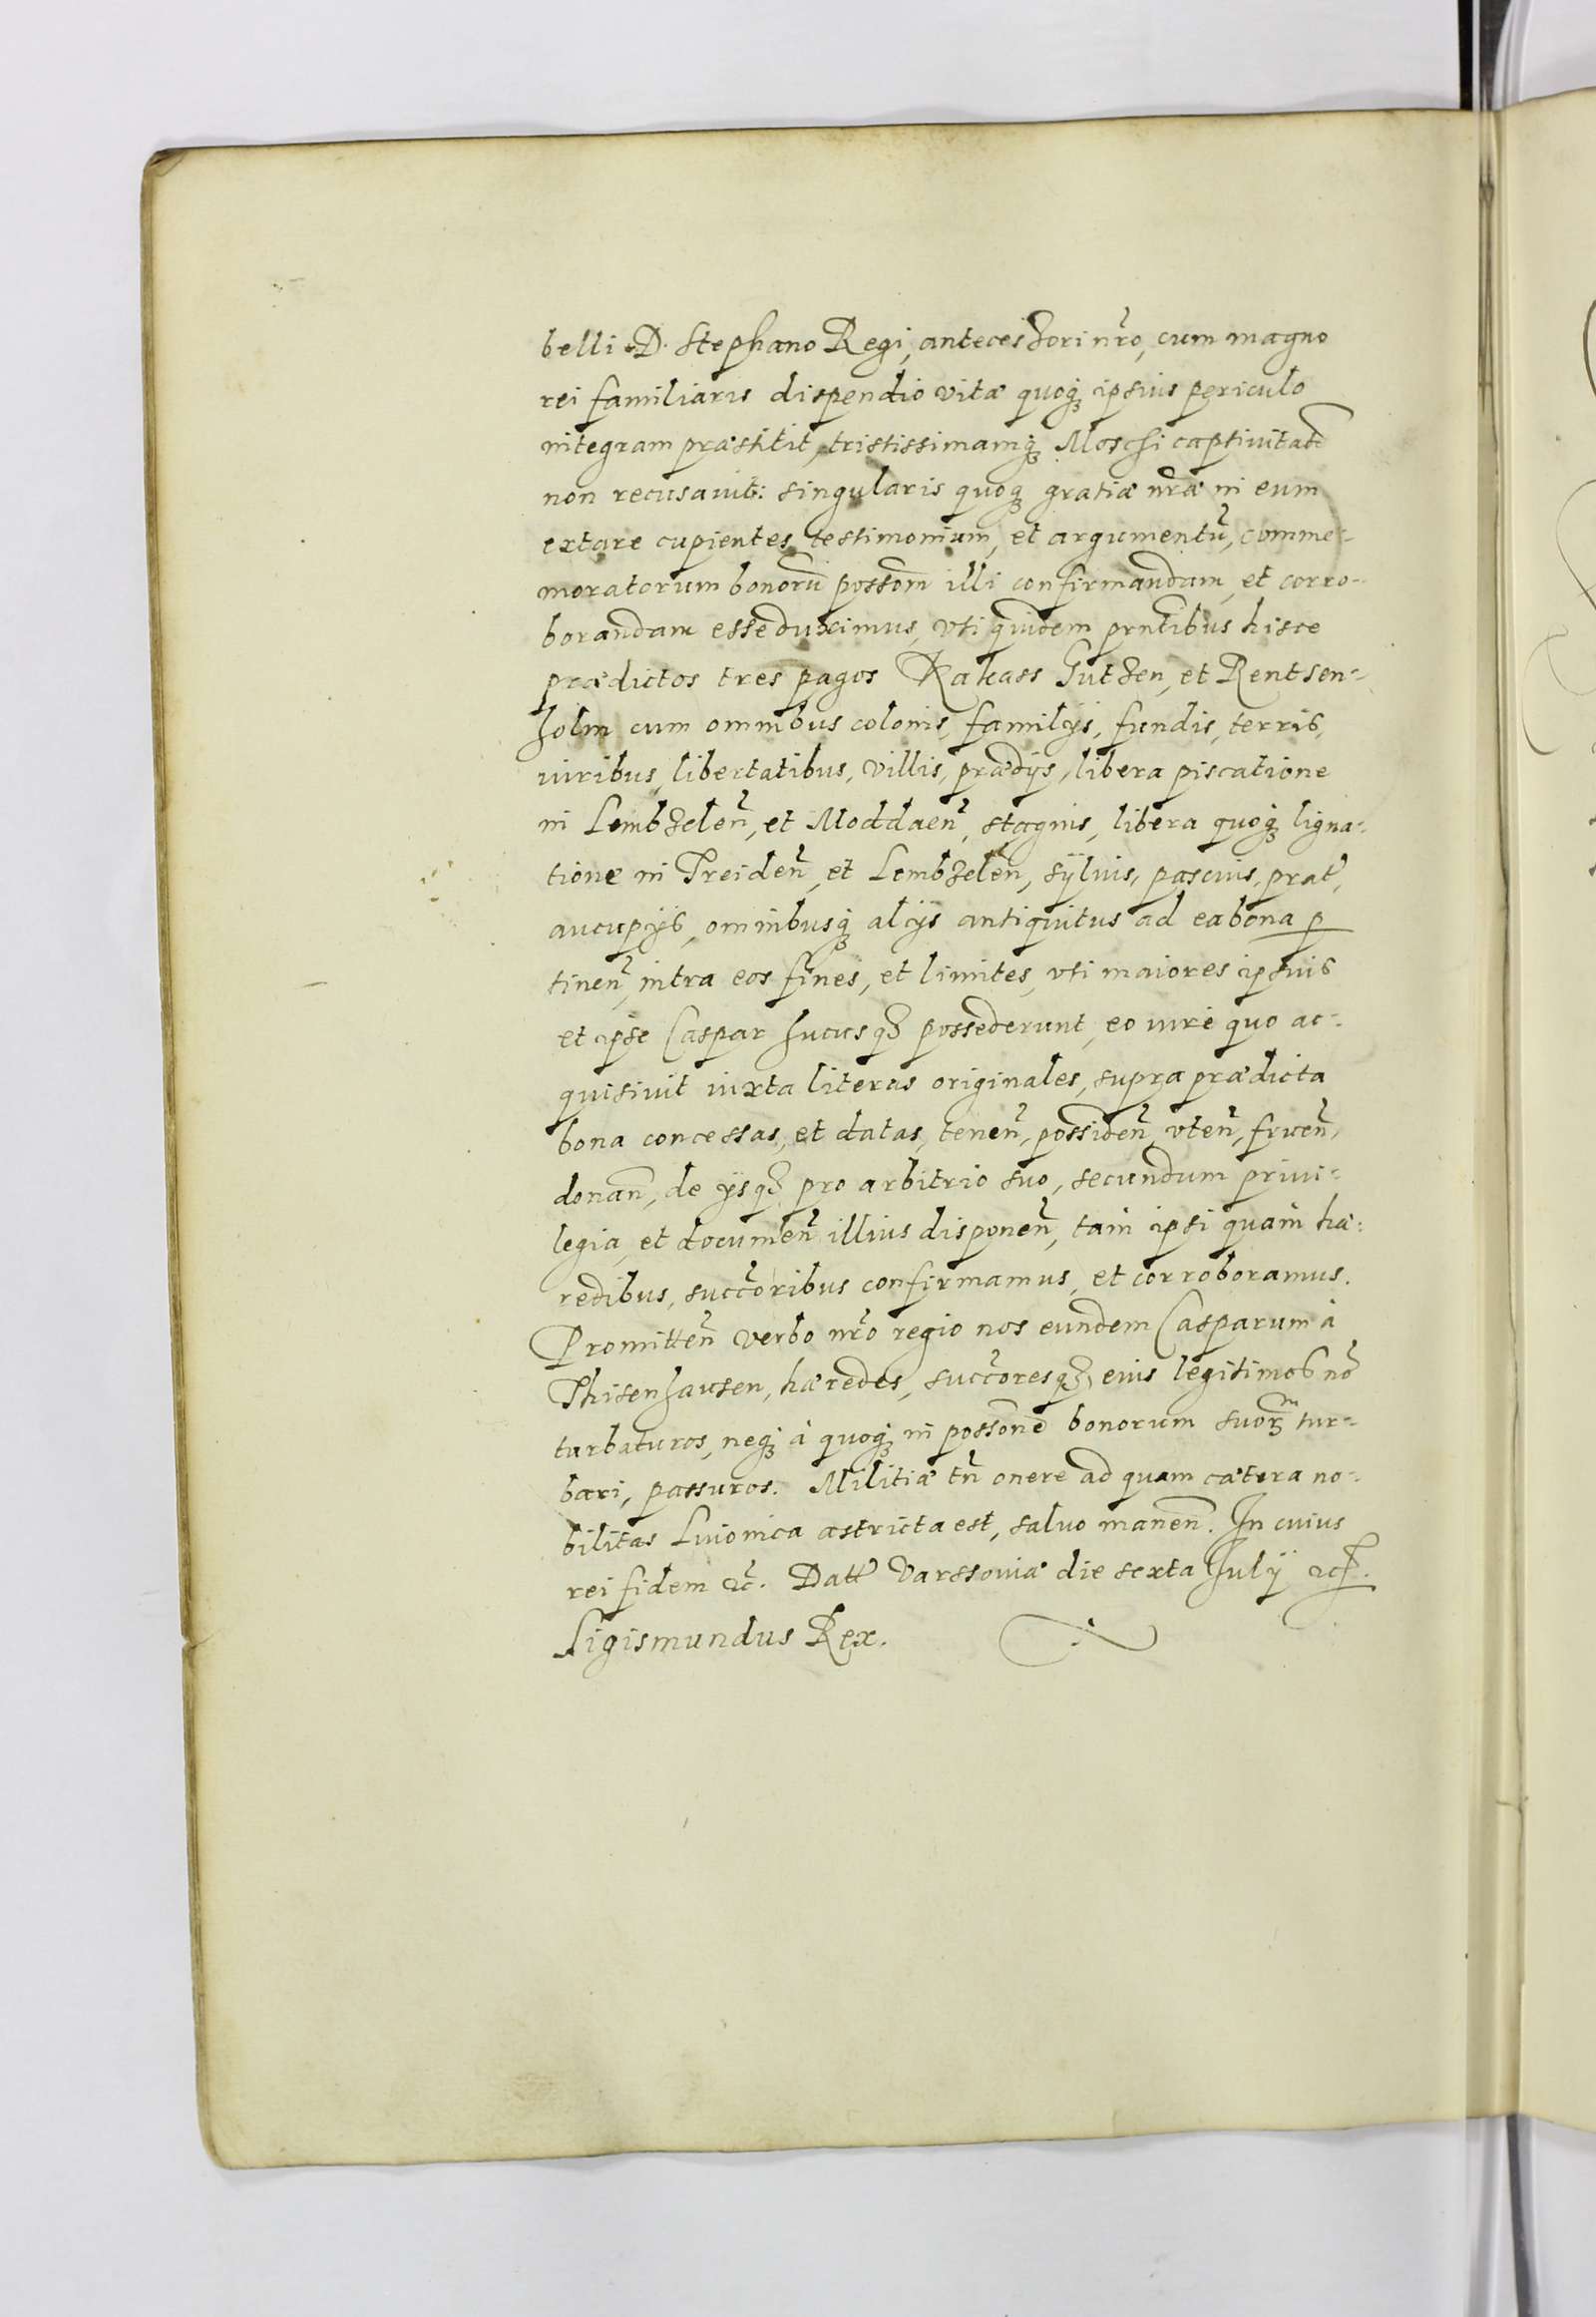 belli D. Stephano Regi, antecessori nr̃o, cum magno
rei familiaris dispendio vitæ quoqꝫ ipsius periculo
integram præstitit, tristissimamqꝫ Moschi captivitatē
non recusavit: singularis quoqꝫ gratiæ nr̃æ in eum
extare cupientes testimonium, et argumentũ, comme-
moratorum bonorũ possom̃ illi confirmandam, et corro-
borandam esse duximus, vti quidem prñtibus hisce
prædictos tres pagos Rakass Gutzen, et Rentsen-
holm cum omnibus colonis, familijs, fundis, terris,
iuribus, libertatibus, villis, prædijs, libera piscatione
in Lembzeleñ, et Moddaeñ, stagnis, libera quoqꝫ ligna-
tione in Treideñ, et Lembzeleñ, sÿluis, pascuis, prat̃,
aucupijs, omnibusqꝫ alijs antiquitus ad ea bona p̱
tineñ, intra eos fines, et limites, vti maiores ipsius
et ipse Caspar hucusqꝫ possederunt, eo iure quo ac-
quisivit iuxta literas originales, supra prædicta
bona concessas, et datas, teneñ, possideñ, vteñ, frueñ,
donañ, de ijsqꝫ pro arbitrio suo, secundum privi-
legia, et documeñ illius disponeñ, tam ipsi quam hæ-
redibus, succ̃oribus confirmamus, et corroboramus.
Promitteñ verbo nr̃o regio nos eundem Casparum à
Thisenhausen, hæredes, succ̃oresqꝫ eius legitimos nõ
turbaturos, neqꝫ à quoqꝫ in possoñe bonorum suorꝫ tur-
bari, passuros. Militiæ tñ onere ad quam cætera no-
bilitas Livonica astricta est, salvo maneñ. In cuius
rei fidem ꝛc̃. Datt Varssoviæ die sexta Julij ꝛc̃.
Sigismundus Rex.